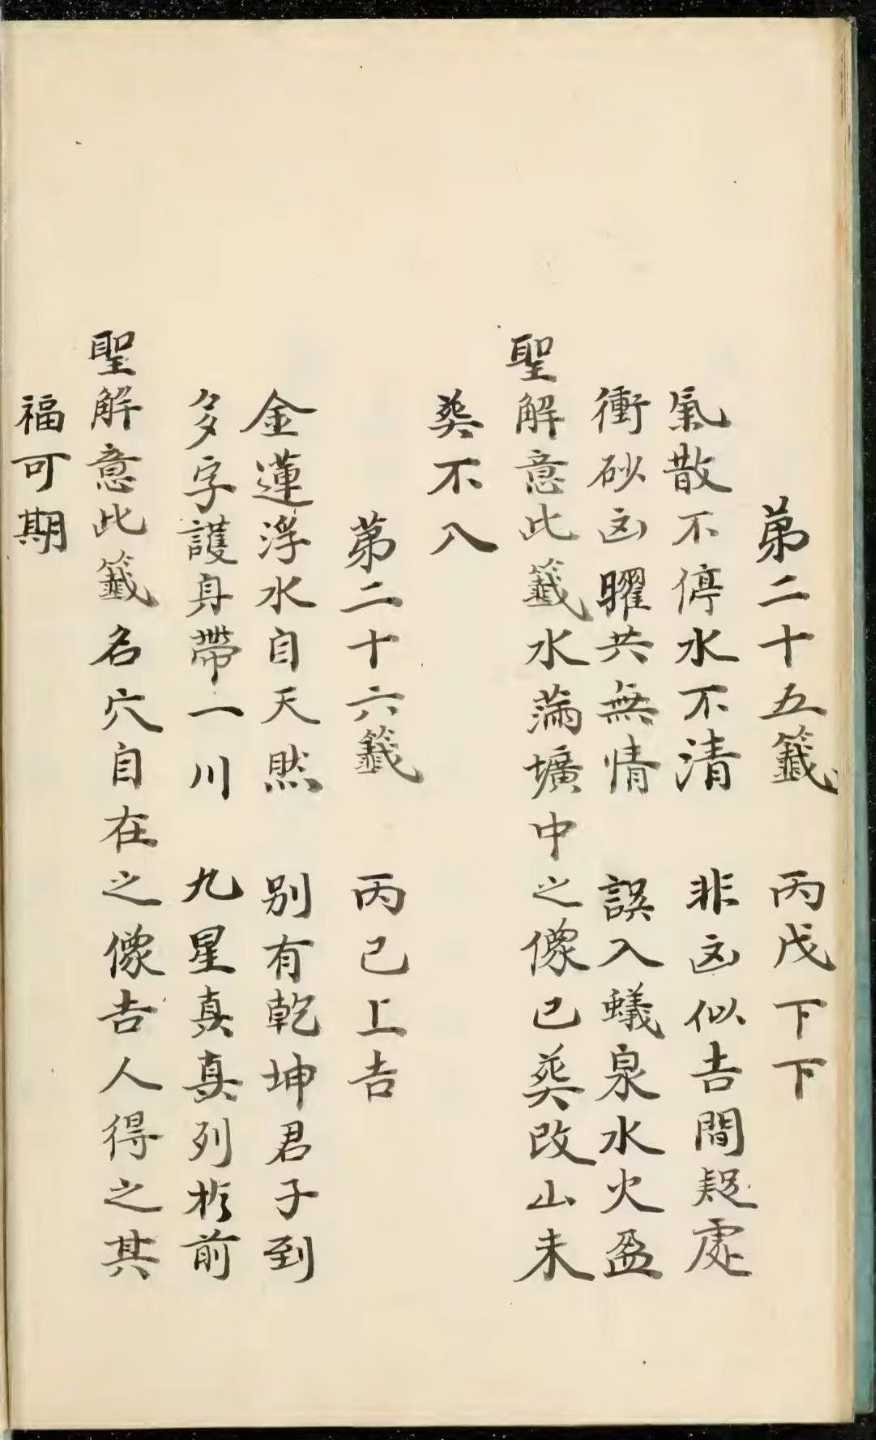 第二十五籤　丙戊下下
氣散不停水不清　非凶似吉間疑處
衝砂凶曜共無情　誤入蟻泉水火盈
聖解意此籤水滿壙中之像已葬改山未
葬不入
第二十六籤　丙己上吉
金蓮浮水自天然　別有乾坤君子到
多字護身帶一川　九星真真列於前
聖解意此籤名穴自在之像吉人得之其
福可期